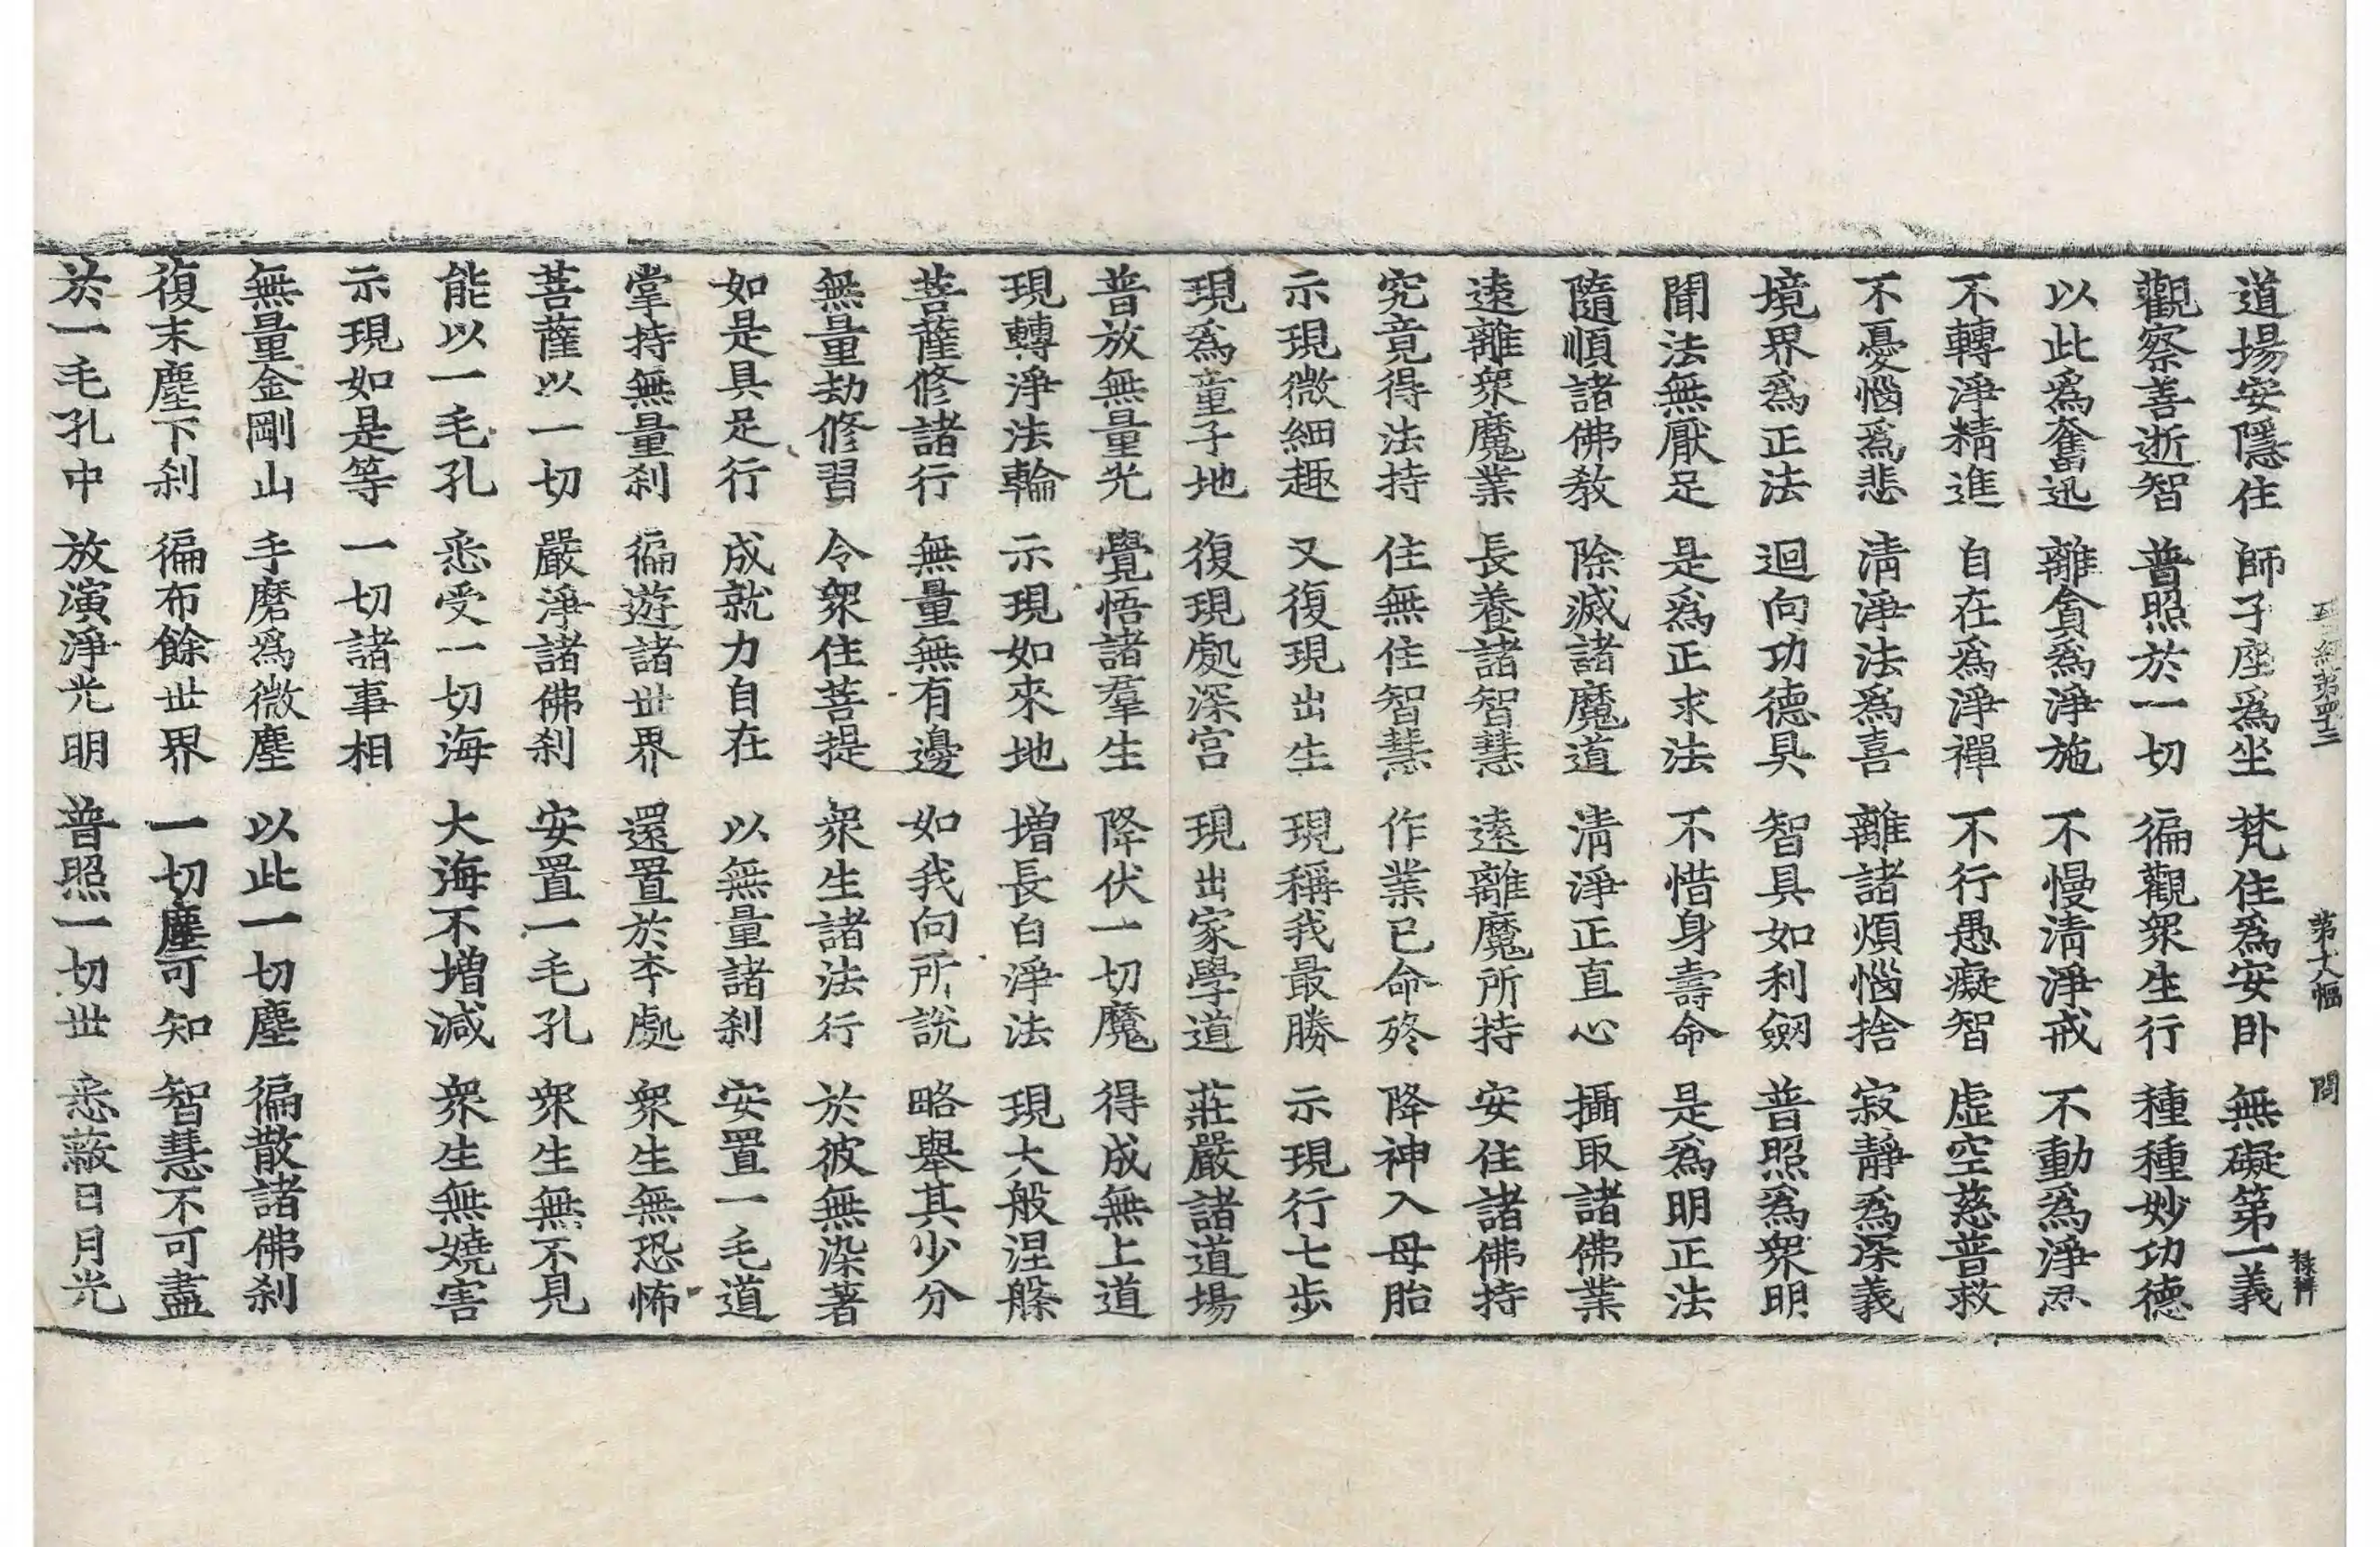 經第四十三 第大幅 問 祿祥
道場安隱住 師子座爲坐 梵住爲安卧 無礙第一義
觀察善逝智 普照於一切 徧觀衆生行 種種妙功德
以此爲奮迅 離貪爲淨施 不慢清淨戒 不動爲淨忍
不轉淨精進 自在爲淨禪 不行愚癡智 虛空慈普救
不憂惱爲悲 清淨法爲喜 離諸煩惱捨 寂靜爲深義
境界爲正法 迴向功德具 智具如利劒 普照爲衆明
聞法無厭足 是爲正求法 不惜身壽命 是爲明正法
隨順諸佛教 除滅諸魔道 清淨正直心 攝取諸佛業
遠離衆魔業 長養諸智慧 遠離魔所持 安住諸佛持
究竟得法持 住無住智慧 作業已命終 降神入母胎
示現微細趣 又復現出生 現稱我最勝 示現行七步
現爲童子地 復現處深宮 現出家學道 莊嚴諸道場
普放無量光 覺悟諸羣生 降伏一切魔 得成無上道
現轉淨法輪 示現如來地 增長白淨法 現大般涅槃
菩薩修諸行 無量無有邊 如我向所說 略舉其少分
無量劫修習 令衆住菩提 衆生諸法行 於彼無染著
如是具足行 成就力自在 以無量諸刹 安置一毛道
掌持無量刹 徧遊諸世界 還置於本處 衆生無恐怖
菩薩以一切 嚴淨諸佛刹 安置一毛孔 衆生無不見
能以一毛孔 悉受一切海 大海不增減 衆生無嬈害
示現如是等 一切諸事相
無量金剛山 手磨爲微塵 以此一切塵 徧散諸佛刹
復末塵下刹 徧布餘世界 一切塵可知 智慧不可盡
於一毛孔中 放演淨光明 普照一切世 悉蔽日月光